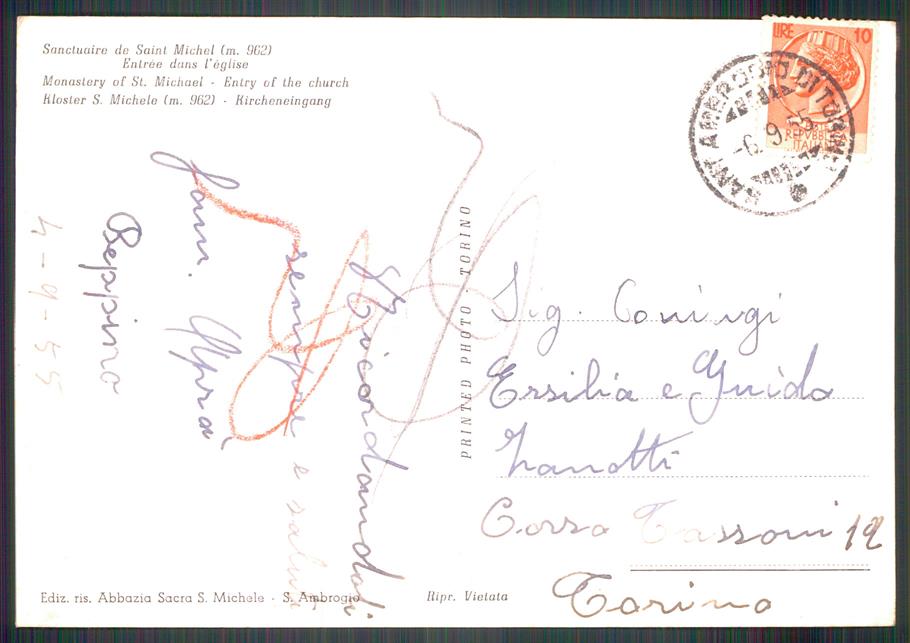 Sanctuaire de Saint Michel (m. 962)
Entrée dans l'église
Monastery of St. Michael - Entry of the church
Kloster S. Michele (m. 962) - Kircheneingang
LIRE 10
REPUBBLICA
ITALIANA
SANT'AMBROGIO DI TORINO
-6.9.55
Ricordandoli
sempre e saluti
fam.
Beppino
4-9-55
PRINTED PHOTO - TORINO
Sig. Coniugi
Ersilia e Guido
Zanotti
Corso Tassoni 12
Torino
Ediz. ris. Abbazia Sacra S. Michele - S. Ambrogio
Ripr. Vietata